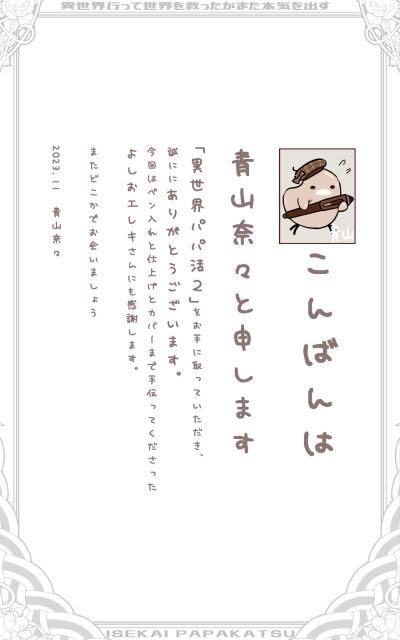 異世界行って世界を救ったがまた本気を出す
こんばんは
青山
青山奈々と申します
「異世界パパ活2」をお手に取っていただき、
誠ににありがとうございます。
今回はペン入れと仕上げとカバーまで手伝ってくださった
よしおエレキさんにも感謝します。
またどこかでお会いましょう
2023.11 青山奈々
ISEKAI PAPAKATSU